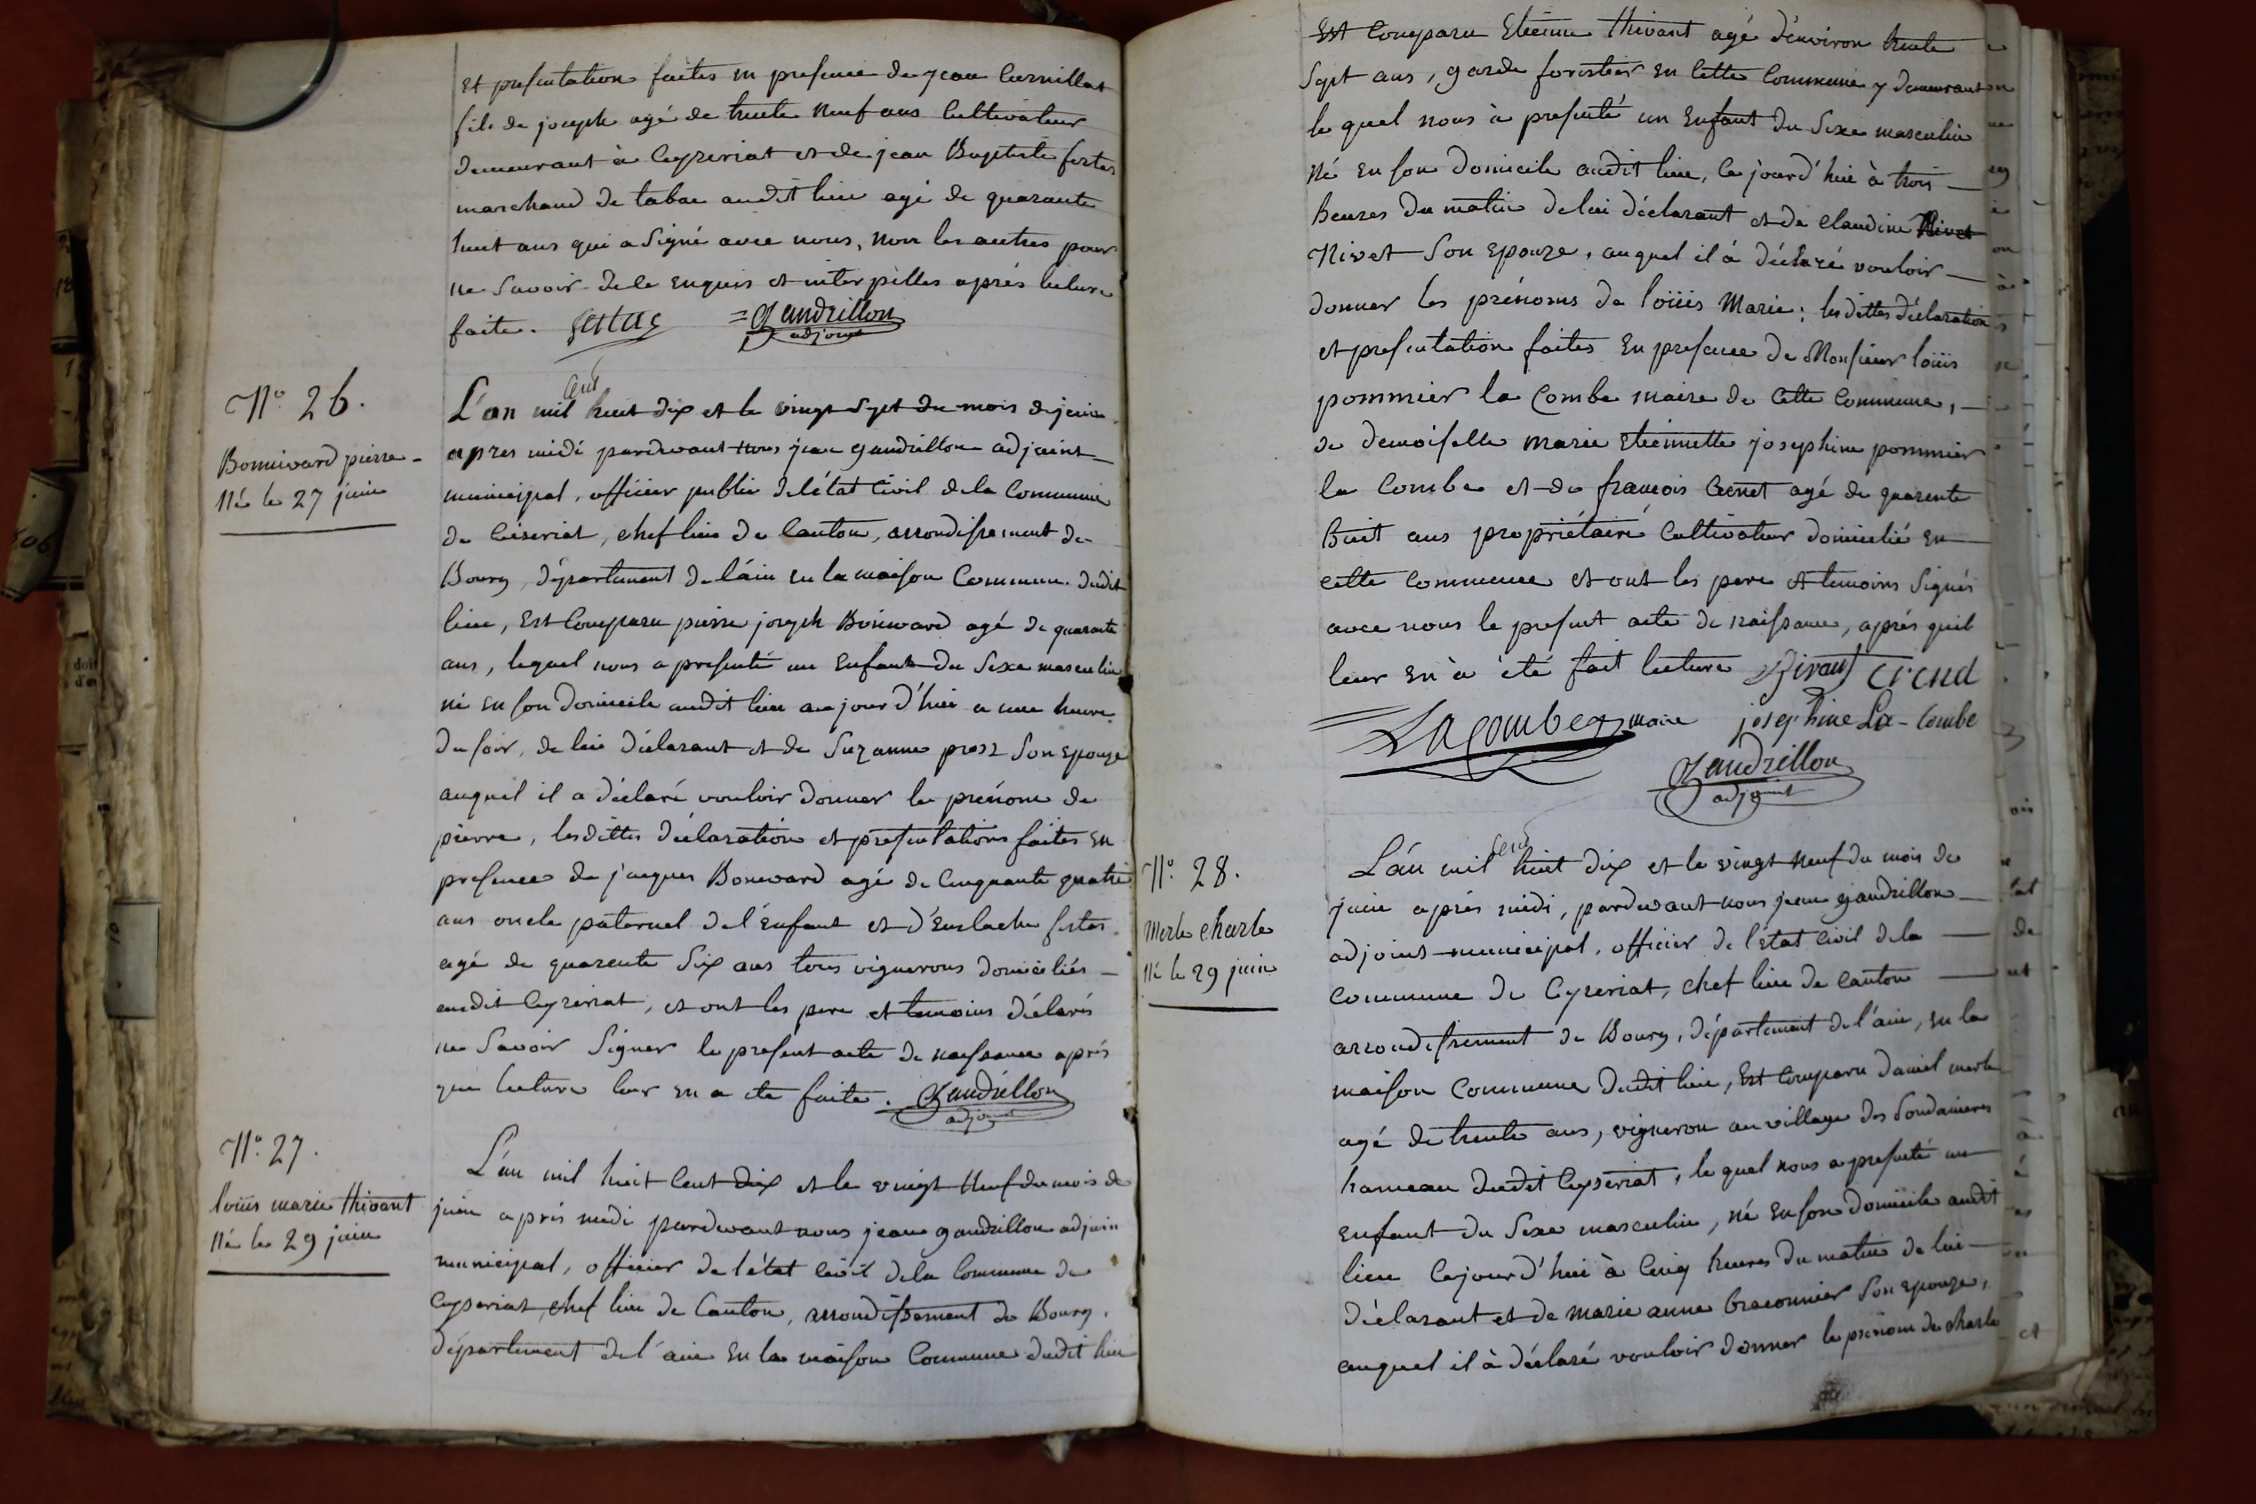 et presentation faites en presence de jean Curnillat
fils de joseph agé de trente neuf ans Cultivateur
demeurant à Ceyzeriat et de jean Baptiste festas
marchand de tabac audit lieu agé de quarante
huit ans qui a signé avec nous, non les autres pour
ne savoir de ce enquis et interpellés aprés lecture
faite. festas = Gandrillon
adjoint
N.º 26.
Bonnivard pierre
Né le 27 juin
Cent
L'an mil huit dix et le vingt sept du mois de juin
apres midi pardevant nous jean gandrillon adjoint
municipal, officier public de l'état Civil de la Commune
de Ceiseriat, chef lieu de Canton, arrondissement de
Bourg, département de l'ain en la maison Commune dudit
lieu, Est Comparu pierre joseph Bonivard agé de quarante
ans, lequel nous a presenté un Enfant du sexe masculin
né en son domicile audit lieu aujourd'hui a une heure
du soir, de lui déclarant et de Suzanne pross son epouze
auquel il a déclaré vouloir donner le prénom de
pierre, lesdittes déclaration et presentations faites en
presence de jacques Bonivard agé de Cinquante quatre
ans oncle paternel de l'Enfant et d'Eustache festas
agé de quarente six ans tous vignerons domiciliés
audit Ceyzeriat, et ont les pere et temoins déclarés
ne savoir signer le present acte de naissance aprés
que lecture leur en a ete faite. Gandrillon
adjoint
N.º 27.
loüis marie thivant
Né le 29 juin
L'an mil huit Cent dix et le vingt Neuf du mois de
juin aprés midi pardevant nous jean gandrillon adjoin
municipal, officier de l'état civil de la Commune de
Ceyseriat, chef lieu de Canton, arrondissement de Bourg,
département de l'ain En la maison Commune dudit lieu
Est Comparu Etienne thivant agé d'environ trente
Sept ans, garde forestier En Cette Commune y demeurant
le quel nous à presenté un Enfant du Sexe masculin
Né En son domicile audit lieu, Ce jourd'hui à trois
heures du matin de lui déclarant et de claudine Nivet
Nivet Son Epouze, auquel il à déclaré vouloir
donner les prénoms de loüis Marie; lesdittes déclaration
et presentation faites En presence de Monsieur loüis
pommier la Combe maire de Cette Commune,
de demoiselle marie Etiennette josephine pommier
la Combe et de françois Crenet agé de quarente
huit ans propriétaire Cultivateur domicilié En
cette Commune et ont les pere et temoins signés
avec nous le present acte de naissance, aprés quil
leur En à été fait lecture
LaCombe maire josephine La-Combe
Gandrillon
adjoint
N.º 28.
Merle charle
Né le 29 juin
cent
L'an mil huit dix et le vingt Neuf du mois de
juin aprés midi, pardevant nous jean gandrillon
adjoint municipal, officier de l'état civil de la
commune de Cyzeriat, chef lieu de canton
arrondissement de Bourg, département de l'ain, en la
maison Commune dudit lieu, Est Comparu daniel merle
agé de trente ans, vigneron au village des Soudanieres
hameau dudit Ceyseriat, le quel nous a presenté un
enfant du Sexe masculin, né En son domicile audit
lieu Cejourd'hui à Cinq heures du matin de lui
déclarant et de marie anne braconnier Son epouze,
auquel il à déclaré vouloir donner le prénom de charle